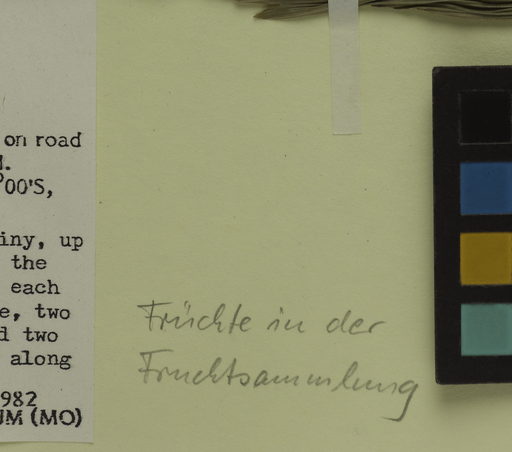 on road
°00'S,
iny, up
the
each
e, two
d two
along
982
UM (MO)
Früchte in der
Fruchtsammlung